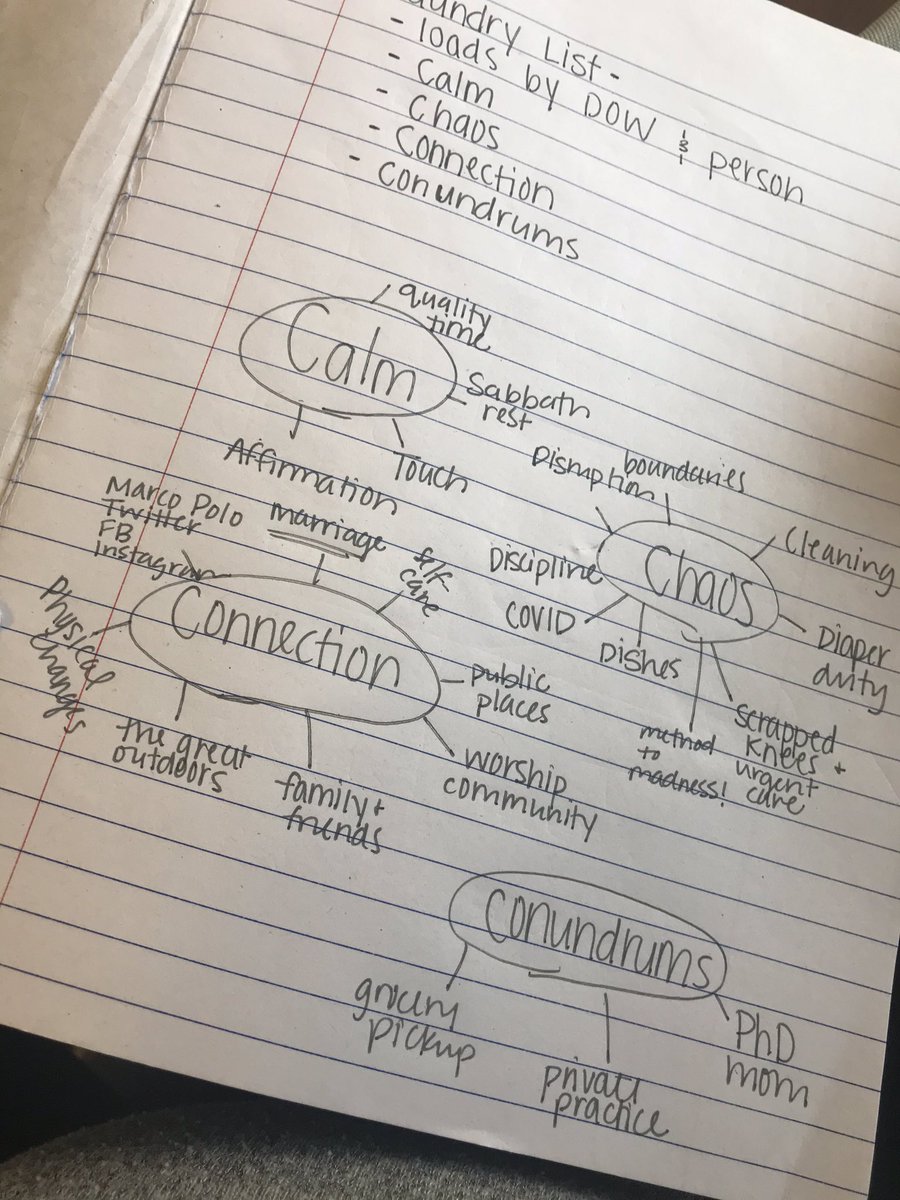 undry List -
- loads by DOW & person
- Calm
- Chaos
- Connection
- Conundrums
Calm
quality
time
Sabbath
rest
Touch
Affirmation
Chaos
Disruption
boundaries
Cleaning
Diaper
duty
scrapped
knees +
urgent
care
method
to
madness!
Dishes
COVID
Discipline
Connection
Marco Polo
Twitter
FB
Instagram
marriage
self
care
public
places
worship
community
family +
friends
the great
outdoors
Physical
changes
Conundrums
grocery
pickup
private
practice
PhD
mom